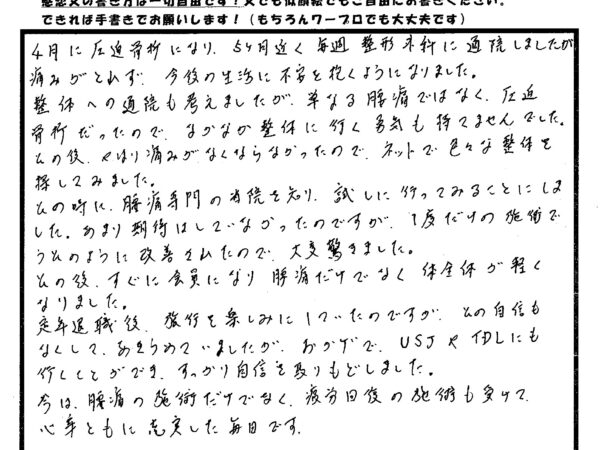 できれば手書きでお願いします！（もちろんワープロでも大丈夫です）
4月に圧迫骨折になり、5ヶ月近く毎週整形外科に通院しましたが
痛みがとれず、今後の生活に不安を抱くようになりました。
整体への通院も考えましたが、単なる腰痛ではなく、圧迫
骨折だったので、なかなか整体に行く勇気も持てませんでした。
その後、やはり痛みがなくならなかったので、ネットで色々な整体を
探してみました。
その時に、腰痛専門の当院を知り、試しに行ってみることにしま
した。あまり期待はしていなかったのですが、1度だけの施術で
うそのように改善されたので、大変驚きました。
その後、すぐに会員になり腰痛だけでなく体全体が軽く
なりました。
定年退職後、旅行を楽しみにしていたのですが、その自信も
なくして、あきらめていましたが、おかげで、USJやTDLにも
行くことができ、すっかり自信を取りもどしました。
今は、腰痛の施術だけでなく、疲労回復の施術も受けて、
心身ともに充実した毎日です。